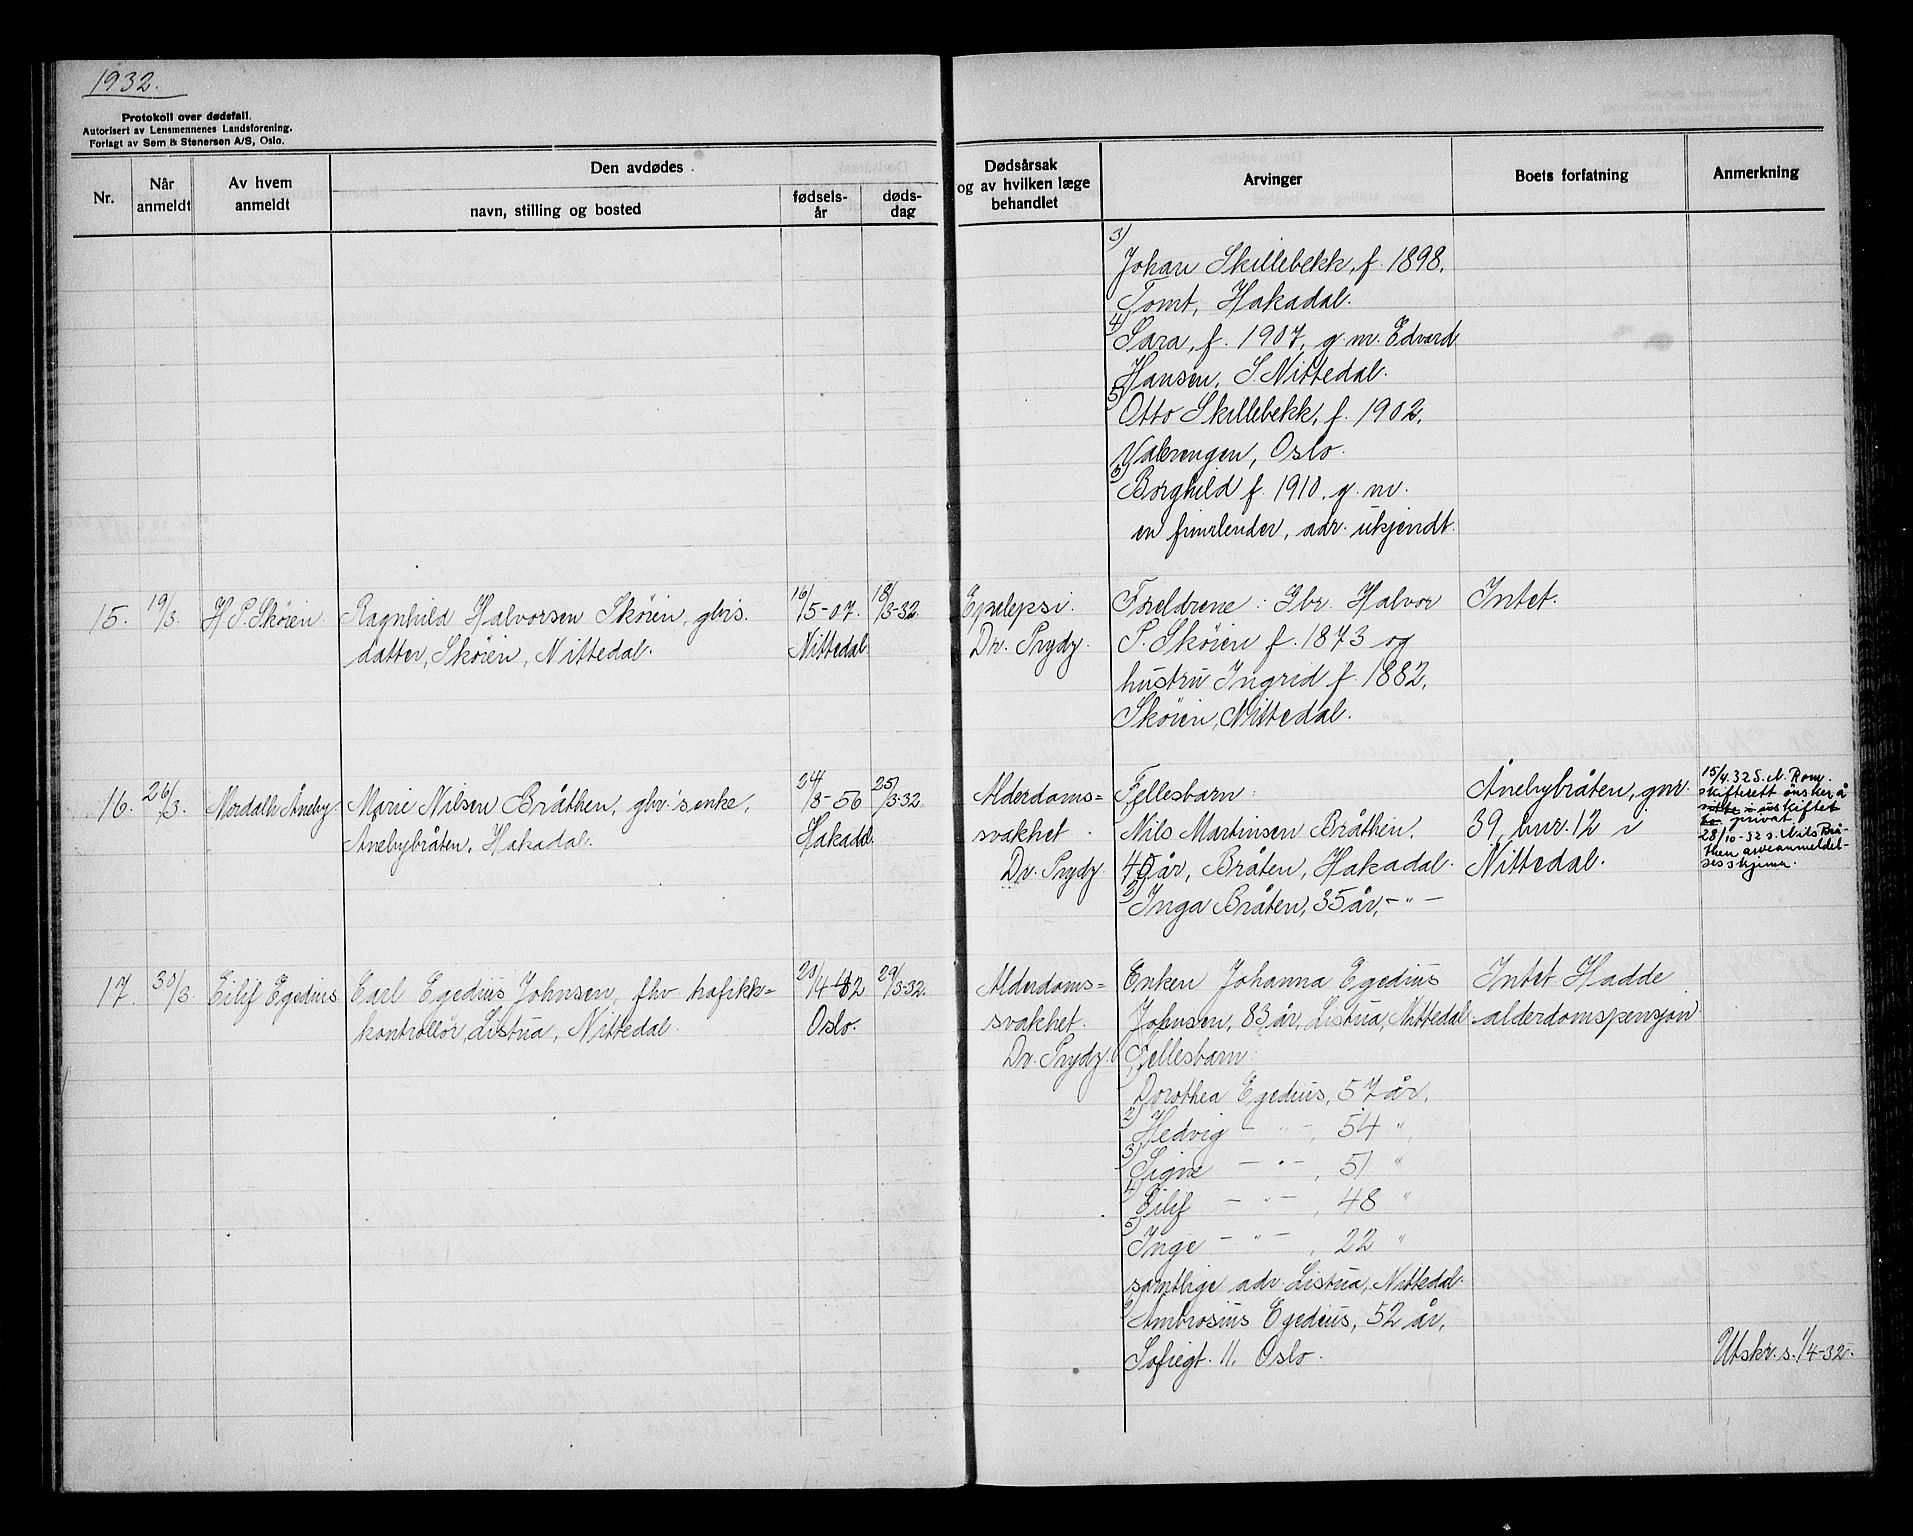 1932.
Protokoll over dødsfall.
Autorisert av Lensmennenes Landsforening.
Forlagt av Sem & Stenersen A/S, Oslo.
Nr.
Når anmeldt
Av hvem anmeldt
Den avdødes
navn, stilling og bosted
fødsels-
år
døds-
dag
Dødsårsak
og av hvilken læge
behandlet
Arvinger
Boets forfatning
Anmerkning
3)
Johan Skillebekk, f. 1898,
Tomt, Hakadal.
4)
Sara, f. 1907, g. m. Edvard
Hansen, S. Nittedal.
5)
Otto Skillebekk, f. 1902,
Valerengen, Oslo.
6)
Borghild f. 1910. g. m.
en finnlender, adr. ukjendt.
15. 19/3. H. P. Skøien Ragnhild Halvorsen Skøien, gbr's. 16/5-07. 18/3-32
datter, Skøien, Nittedal. Nittedal
Epelepsi. Foreldrene: Gbr. Halvor Intet.
Dr. Prydz. P. Skøien f. 1873 og
hustru Ingrid f. 1882,
Skøien, Nittedal.
16. 26/3. Nordahl Aneby Marie Nilsen Bråthen, gbr's enke, 24/3-56 25/3-32.
Anebybråten, Hakadal. Hakadal.
Alderdoms= Fellesbarn: Ånebybråten, gnr.
svakhet. Nils Martinsen Bråthen, 39, bnr. 12 i
Dr. Prydz 40 år, Bråten, Hakadal. Nittedal.
2) Inga Bråten, 35 år, - " -
15/4.32 S. N. Rom.
skifterett ønsker å
skiftet
bo privat
28/10-32 s. Nils Brå-
then arveanmeldel-
sesskjema.
17. 30/3. Eilif Egedius Carl Egedius Johnsen, fhv. trafikk= 20/4 29/3-32.
kontrollør, Listua, Nittedal. Oslo.
Alderdoms= Enken Johanna Egedius Intet Hadde
svakhet. Johnsen, 83 år, Listua, Nittedal. alderdomspensjon
Dr. Prydz. Fellesbarn:
1)
Dorothea Egedius, 57 år,
2)
Hedvig - " - , 54 "
3)
Signe - " - , 51 "
4)
Eilif - " - , 48 "
5)
Inge - " - , 22 "
samtlige adr. Listua, Nittedal.
6)
Ambrosius Egedius, 52 år,
Sofiegt. 11. Oslo.
Utskr. s. 1/4-32.